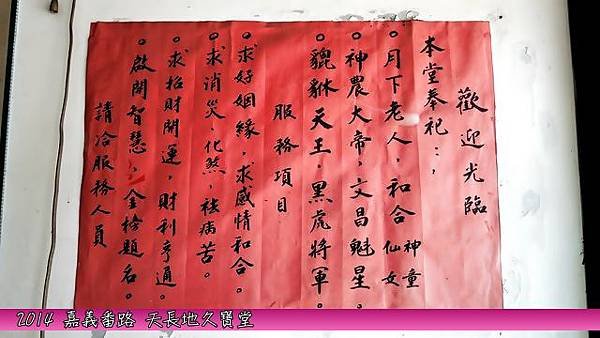 歡迎光臨
本堂奉祀：，
。月下老人，和合神童仙女
。神農大帝，文昌魁星。
。貔貅天王，黑虎將軍。
服務項目
。求好姻緣，求感情和合。
。求消災，化煞，祛病苦。
。求招財開運，財利亨通。
。啟開智慧，金榜題名。
請洽服務人員
2014 嘉義番路 天長地久寶堂